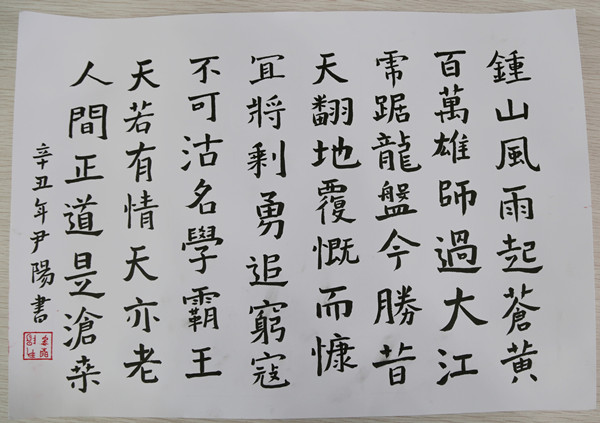 鍾山風雨起蒼黃
百萬雄師過大江
虎踞龍盤今勝昔
天翻地覆慨而慷
宜將剩勇追窮寇
不可沽名學霸王
天若有情天亦老
人間正道是滄桑
辛丑年尹陽書